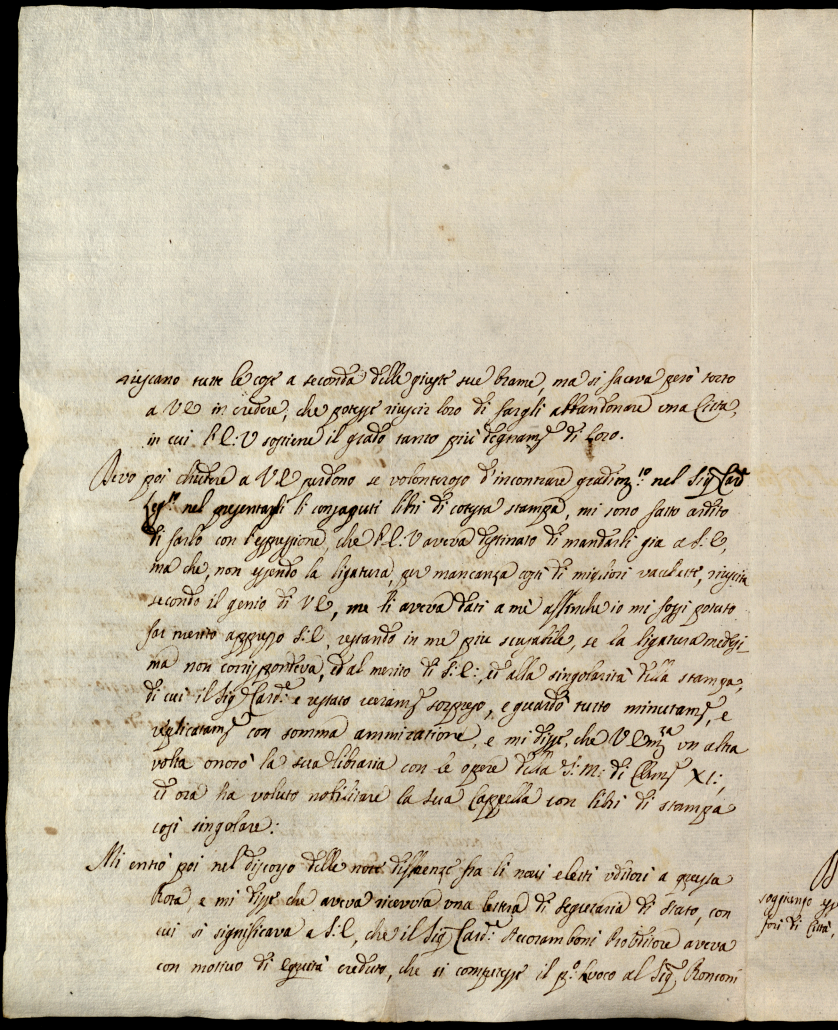 riescano tutte le cose a seconda delle giuste sue brame, ma si faceva però torto
a VE in credere, che potesse riuscir loro di fargli abbandonare una Città,
in cui l'E:V sostiene il grado tanto più degnam.e di loro.
Devo poi chiedere a VE perdono se volonteroso d'incontrare gradim.to nel Sig.r Card.
Leg.to nel presentargli li consaputi libri di cotesta stampa, mi sono fatto ardito
di farlo con l'espressione, che l'E:V aveva destinato di mandarli già a S:E,
ma che, non essendo la ligatura, per mancanza costì di migliori vacchette, riuscita
secondo il genio di VE, me li aveva dati a me affinche io mi fossi potuto
far merito appresso S:E, restando in me più scusabile, se la ligatura medesi
ma non corrispondeva, ed al merito di S:E:, ed alla singolarità della stampa,
di cui il Sig.r Card.e è restato veram.e sorpreso, e guardò tutto minutam.e, e
replicatam.e con somma ammirazione, e mi disse, che VEmza un altra
volta onorò la sua libraria con le opere della S:M: di Clem.e XI:,
ed ora ha voluto nobilitare la sua Cappella con libri di stampa
così singolare:
Mi entrò poi nel discorso delle note differenze fra li novi eletti Uditori a questa
Rota, e mi disse che aveva ricevuta una lettera di Segretaria di Stato, con
cui si significava a S:E, che il Sig.r Card.e Accoramboni Proditore aveva
con motivo di equità creduto, che si competesse il p.o luoco al Sig.r Ronconi
soggiunto
fori di Città,